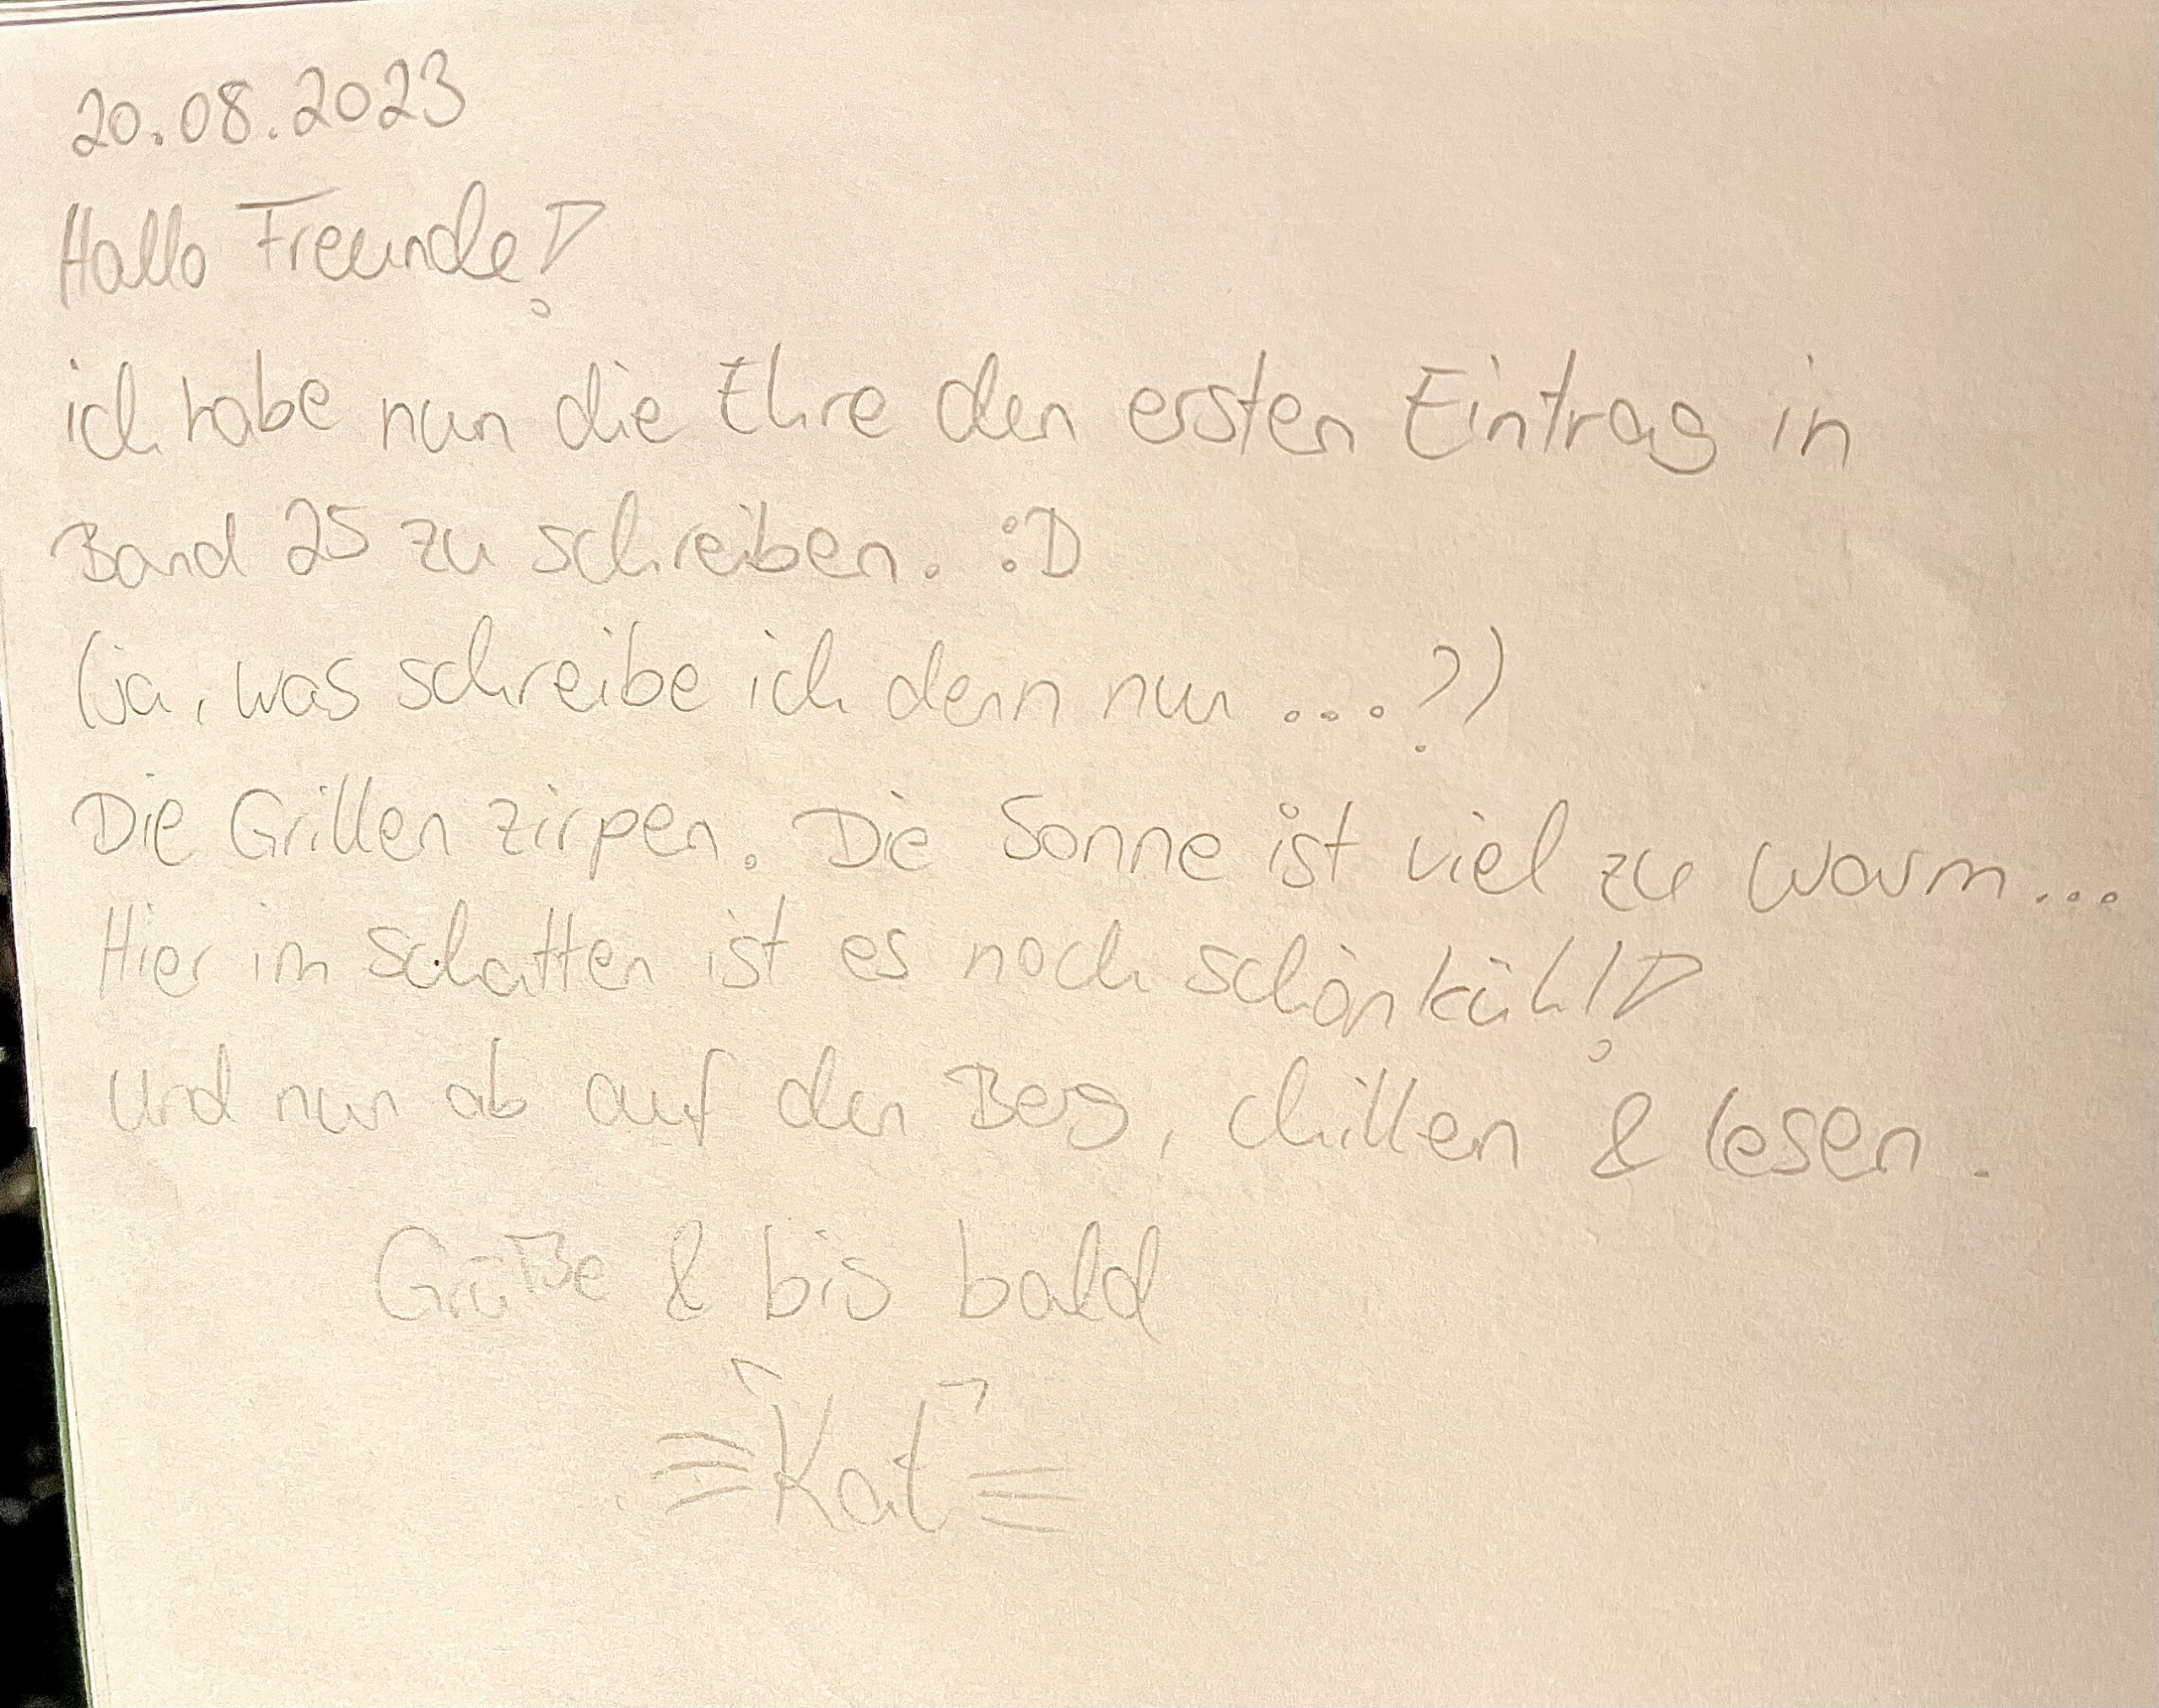 20.08.2023
Hallo Freunde!
ich habe nun die Ehre den ersten Eintrag in
Band 25 zu schreiben. :D
(ja, was schreibe ich denn nur ...?)
Die Grillen zirpen. Die Sonne ist viel zu warm...
Hier im Schatten ist es noch schön kühl!
Und nun ab auf den Berg, chillen & lesen.
Grüße & bis bald
Kat